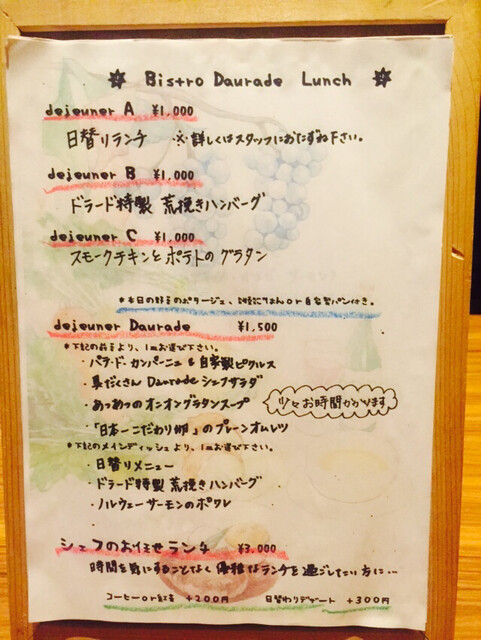 Bistro Daurade Lunch
dejeuner A ¥1,000
日替りランチ ※詳しくはスタッフにおたずね下さい。
dejeuner B ¥1,000
ドラード特製 荒挽きハンバーグ
dejeuner C ¥1,000
スモークチキンとポテトのグラタン
*本日の野菜のポタージュ、雑穀ごはんor自家製パン付き。
dejeuner Daurade ¥1,500
*下記の前菜より、1品お選び下さい。
・パテ・ド・カンパーニュ&自家製ピクルス
・具だくさん Daurade シェフサラダ
・あつあつのオニオングラタンスープ
少々お時間かかります
・「日本一こだわり卵」のプレーンオムレツ
*下記のメインディッシュより、1品お選び下さい。
・日替りメニュー
・ドラード特製 荒挽きハンバーグ
・ノルウェーサーモンのポワレ
シェフのお任せランチ ¥3,000
時間を気にすることなく優雅なランチを過ごしたい方に...
コーヒーor紅茶 +200円 日替わりデザート +300円